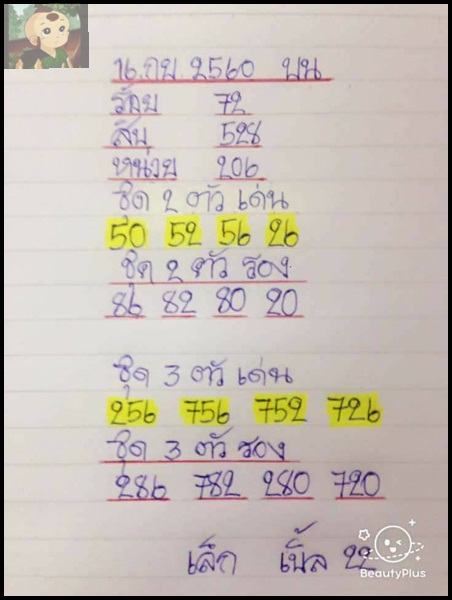 16 กพ. 2560 บน
ร้อย 72
สิบ 528
หน่วย 206
ชุด 2 ตัว เด่น
50 52 56 26
ชุด 2 ตัว รอง
86 82 80 20
ชุด 3 ตัว เด่น
256 756 752 726
ชุด 3 ตัว รอง
286 782 280 720
เล็ก เบิ้ล 22
BeautyPlus